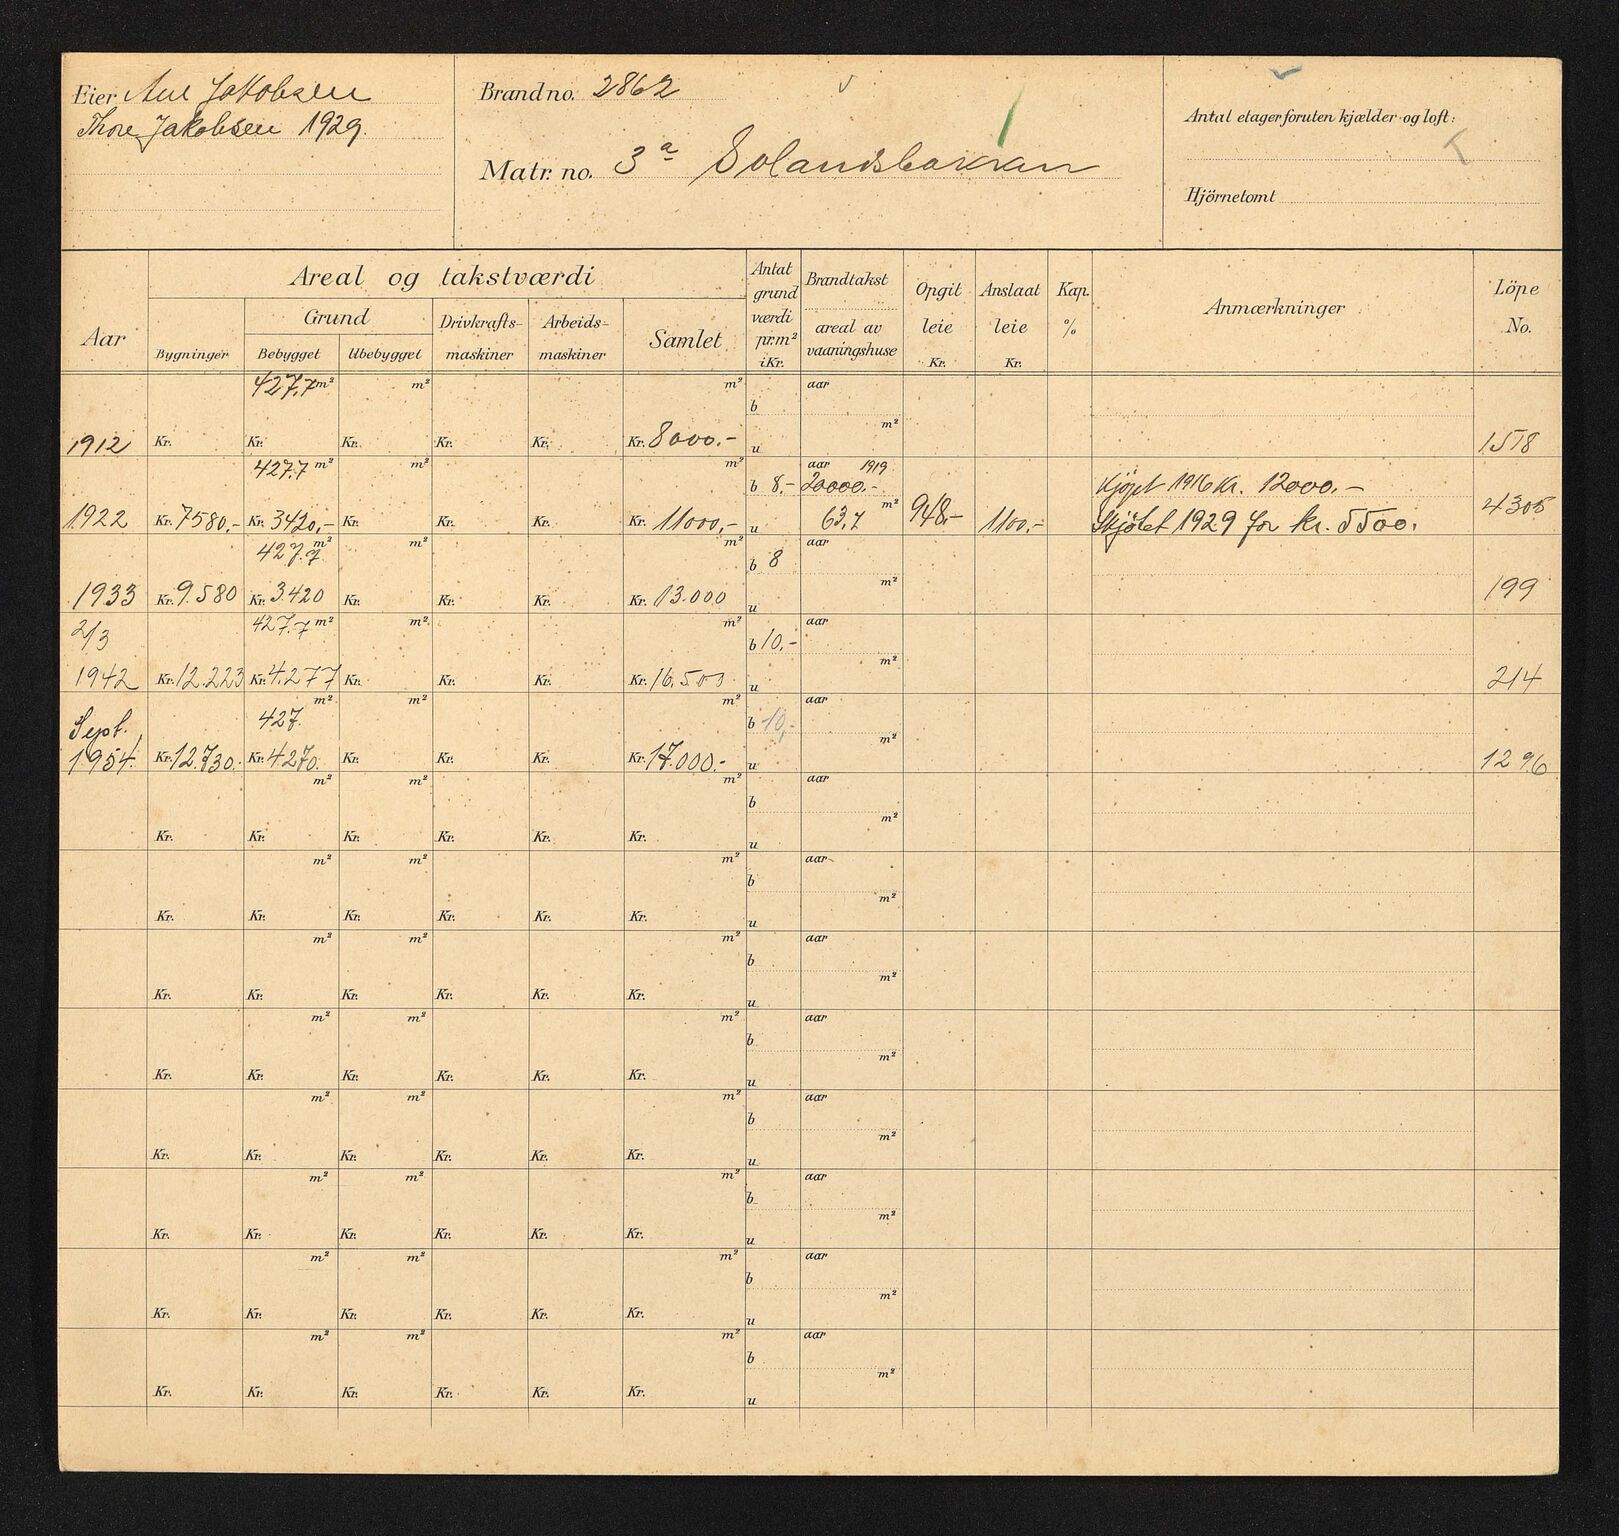 Eier Ane Jakobsen
Thore Jakobsen 1929.
Brandno. 2862
Matr. no. 3a Solandsbakken
Antal etager foruten kjælder og loft:
Hjörnetomt
Aar
Areal og takstværdi
Bygninger
Grund
Bebygget Ubebygget
Drivkrafts-
maskiner
Arbeids-
maskiner
Samlet
Antat
grund
værdi
pr.m²
i Kr.
Brandtakst
areal av
vaaningshuse
Opgit
leie
Kr.
Anslaat
leie
Kr.
Kap.
%
Anmærkninger
Löpe
No.
427,7 m² m² m² aar
b
m²
1912 Kr. Kr. Kr. Kr. Kr. Kr. 8000.- u 1518
427.7 m² m² m² aar 1919
b 8,- 20000.- Kjøpt 1916 Kr. 12000.-
1922 Kr. 7580,- Kr. 3420,- Kr. Kr. Kr. Kr. 11000,- u 63,7 m² 948.- 1100,- Skjøtet 1929 for kr. 5500. 4305
427.7 m² m² m² aar
b 8
m²
1933 Kr. 9.580 Kr. 3.420 Kr. Kr. Kr. Kr. 13.000 u 199
2/3 427.7 m² m² m² aar
b 10,-
m²
1942 Kr. 12.223 Kr. 4.277 Kr. Kr. Kr. Kr. 16.500 u 214
m² m² m² aar
Sept. 427. b 10,-
m²
1954. Kr. 12.730. Kr. 4270. Kr. Kr. Kr. Kr. 17.000.- u 1296
m² m² m² aar
b
m²
Kr. Kr. Kr. Kr. Kr. Kr. u
m² m² m² aar
b
m²
Kr. Kr. Kr. Kr. Kr. Kr. u
m² m² m² aar
b
m²
Kr. Kr. Kr. Kr. Kr. Kr. u
m² m² m² aar
b
m²
Kr. Kr. Kr. Kr. Kr. Kr. u
m² m² m² aar
b
m²
Kr. Kr. Kr. Kr. Kr. Kr. u
m² m² m² aar
b
m²
Kr. Kr. Kr. Kr. Kr. Kr. u
m² m² m² aar
b
m²
Kr. Kr. Kr. Kr. Kr. Kr. u
m² m² m² aar
b
m²
Kr. Kr. Kr. Kr. Kr. Kr. u